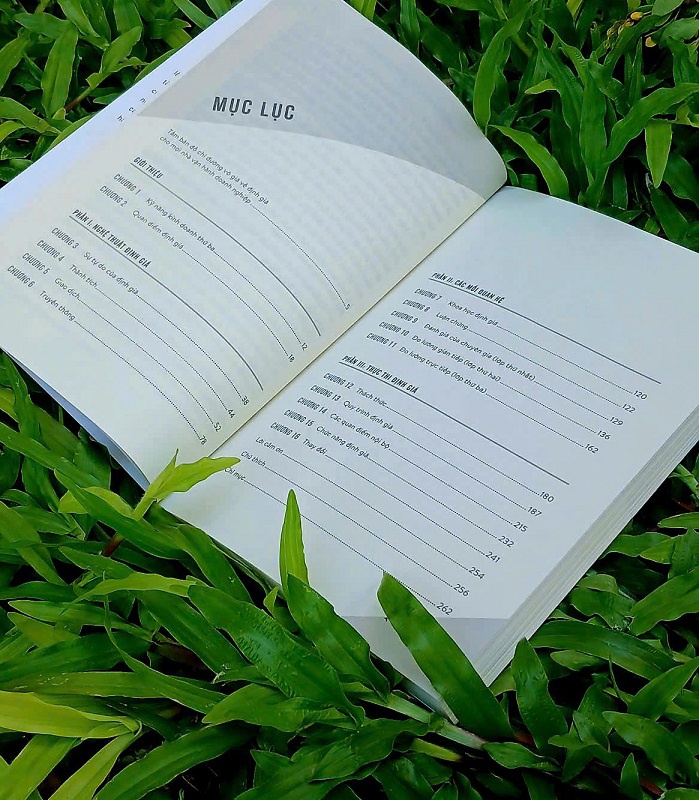 MỤC LỤC
Tấm bản đồ chỉ đường vô giá về định giá
cho mọi nhà vận hành doanh nghiệp........5
GIỚI THIỆU
CHƯƠNG 1 Kỹ năng kinh doanh thứ ba........12
CHƯƠNG 2 Quan điểm định giá........18
PHẦN I. NGHỆ THUẬT ĐỊNH GIÁ
CHƯƠNG 3 Sự tự do của định giá........38
CHƯƠNG 4 Thành tích........44
CHƯƠNG 5 Giao dịch........52
CHƯƠNG 6 Truyền thông........78
PHẦN II: CÁC MỐI QUAN HỆ
CHƯƠNG 7 Khoa học định giá........120
CHƯƠNG 8 Luận chứng........122
CHƯƠNG 9 Đánh giá của chuyên gia (lớp thứ nhất)........129
CHƯƠNG 10 Đo lường gián tiếp (lớp thứ hai)........136
CHƯƠNG 11 Đo lường trực tiếp (lớp thứ ba)........162
PHẦN III: THỰC THI ĐỊNH GIÁ
CHƯƠNG 12 Thách thức........180
CHƯƠNG 13 Quy trình định giá........187
CHƯƠNG 14 Các quan điểm nội bộ........215
CHƯƠNG 15 Chức năng định giá........232
CHƯƠNG 16 Thay đổi........241
Lời cảm ơn........254
Chú thích........256
Chỉ mục........262